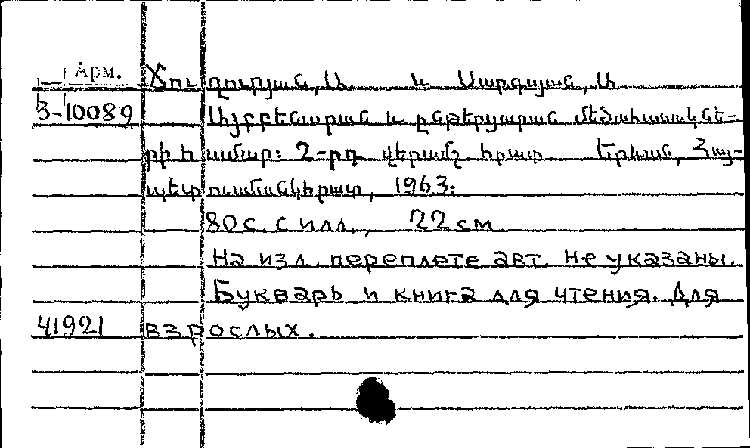 Арм.
Ճուղուրյան, Ա. և Սարգսյան, Ա
З-10089 Այբբենարան և ընթերցարան մեծահասակնե-
րի համար: 2-րդ վերամշ. հրատ. Երևան, Հայ-
պետուսմանկհրատ, 1963:
80 с. с илл., 22 см
На изл. переплете авт. не указаны.
Букварь и книга для чтения. Для
41921 взрослых.